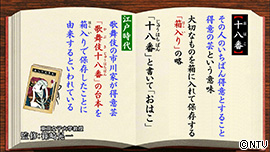 【十八番】
その人のいちばん得意とすること
得意の芸という意味
大切なものを箱に入れて保存する
「箱入り」の略
じゅうはちばん
「十八番」と書いて「おはこ」
江戸時代
歌舞伎の市川家が得意芸
「歌舞伎十八番」の台本を
箱入りで保存したことに
由来するといわれている
©NTV